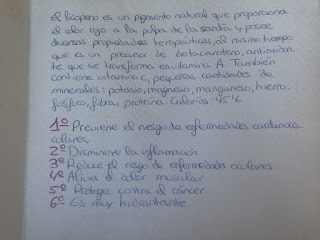 El licopeno es un pigmento natural que proporciona
el color rojo a la pulpa de la sandía y posee
diversas propiedades terapeúticas, al mismo tiempo
que es un precursor de betacaroteno, antioxidan
te que se transforma en vitamina A. También
contiene vitamina c, pequeñas cantidades de
minerales: potasio, magnesio, manganeso, hierro,
fósforo, fibra, proteína. Calorías 45'6
1º Previene el riesgo de enfermedades cardiovas
culares
2º Disminuye la inflamación
3º Reduce el riesgo de enfermedades oculares
4º Alivia el dolor muscular
5º Protege contra el cáncer
6º Es muy hidratante